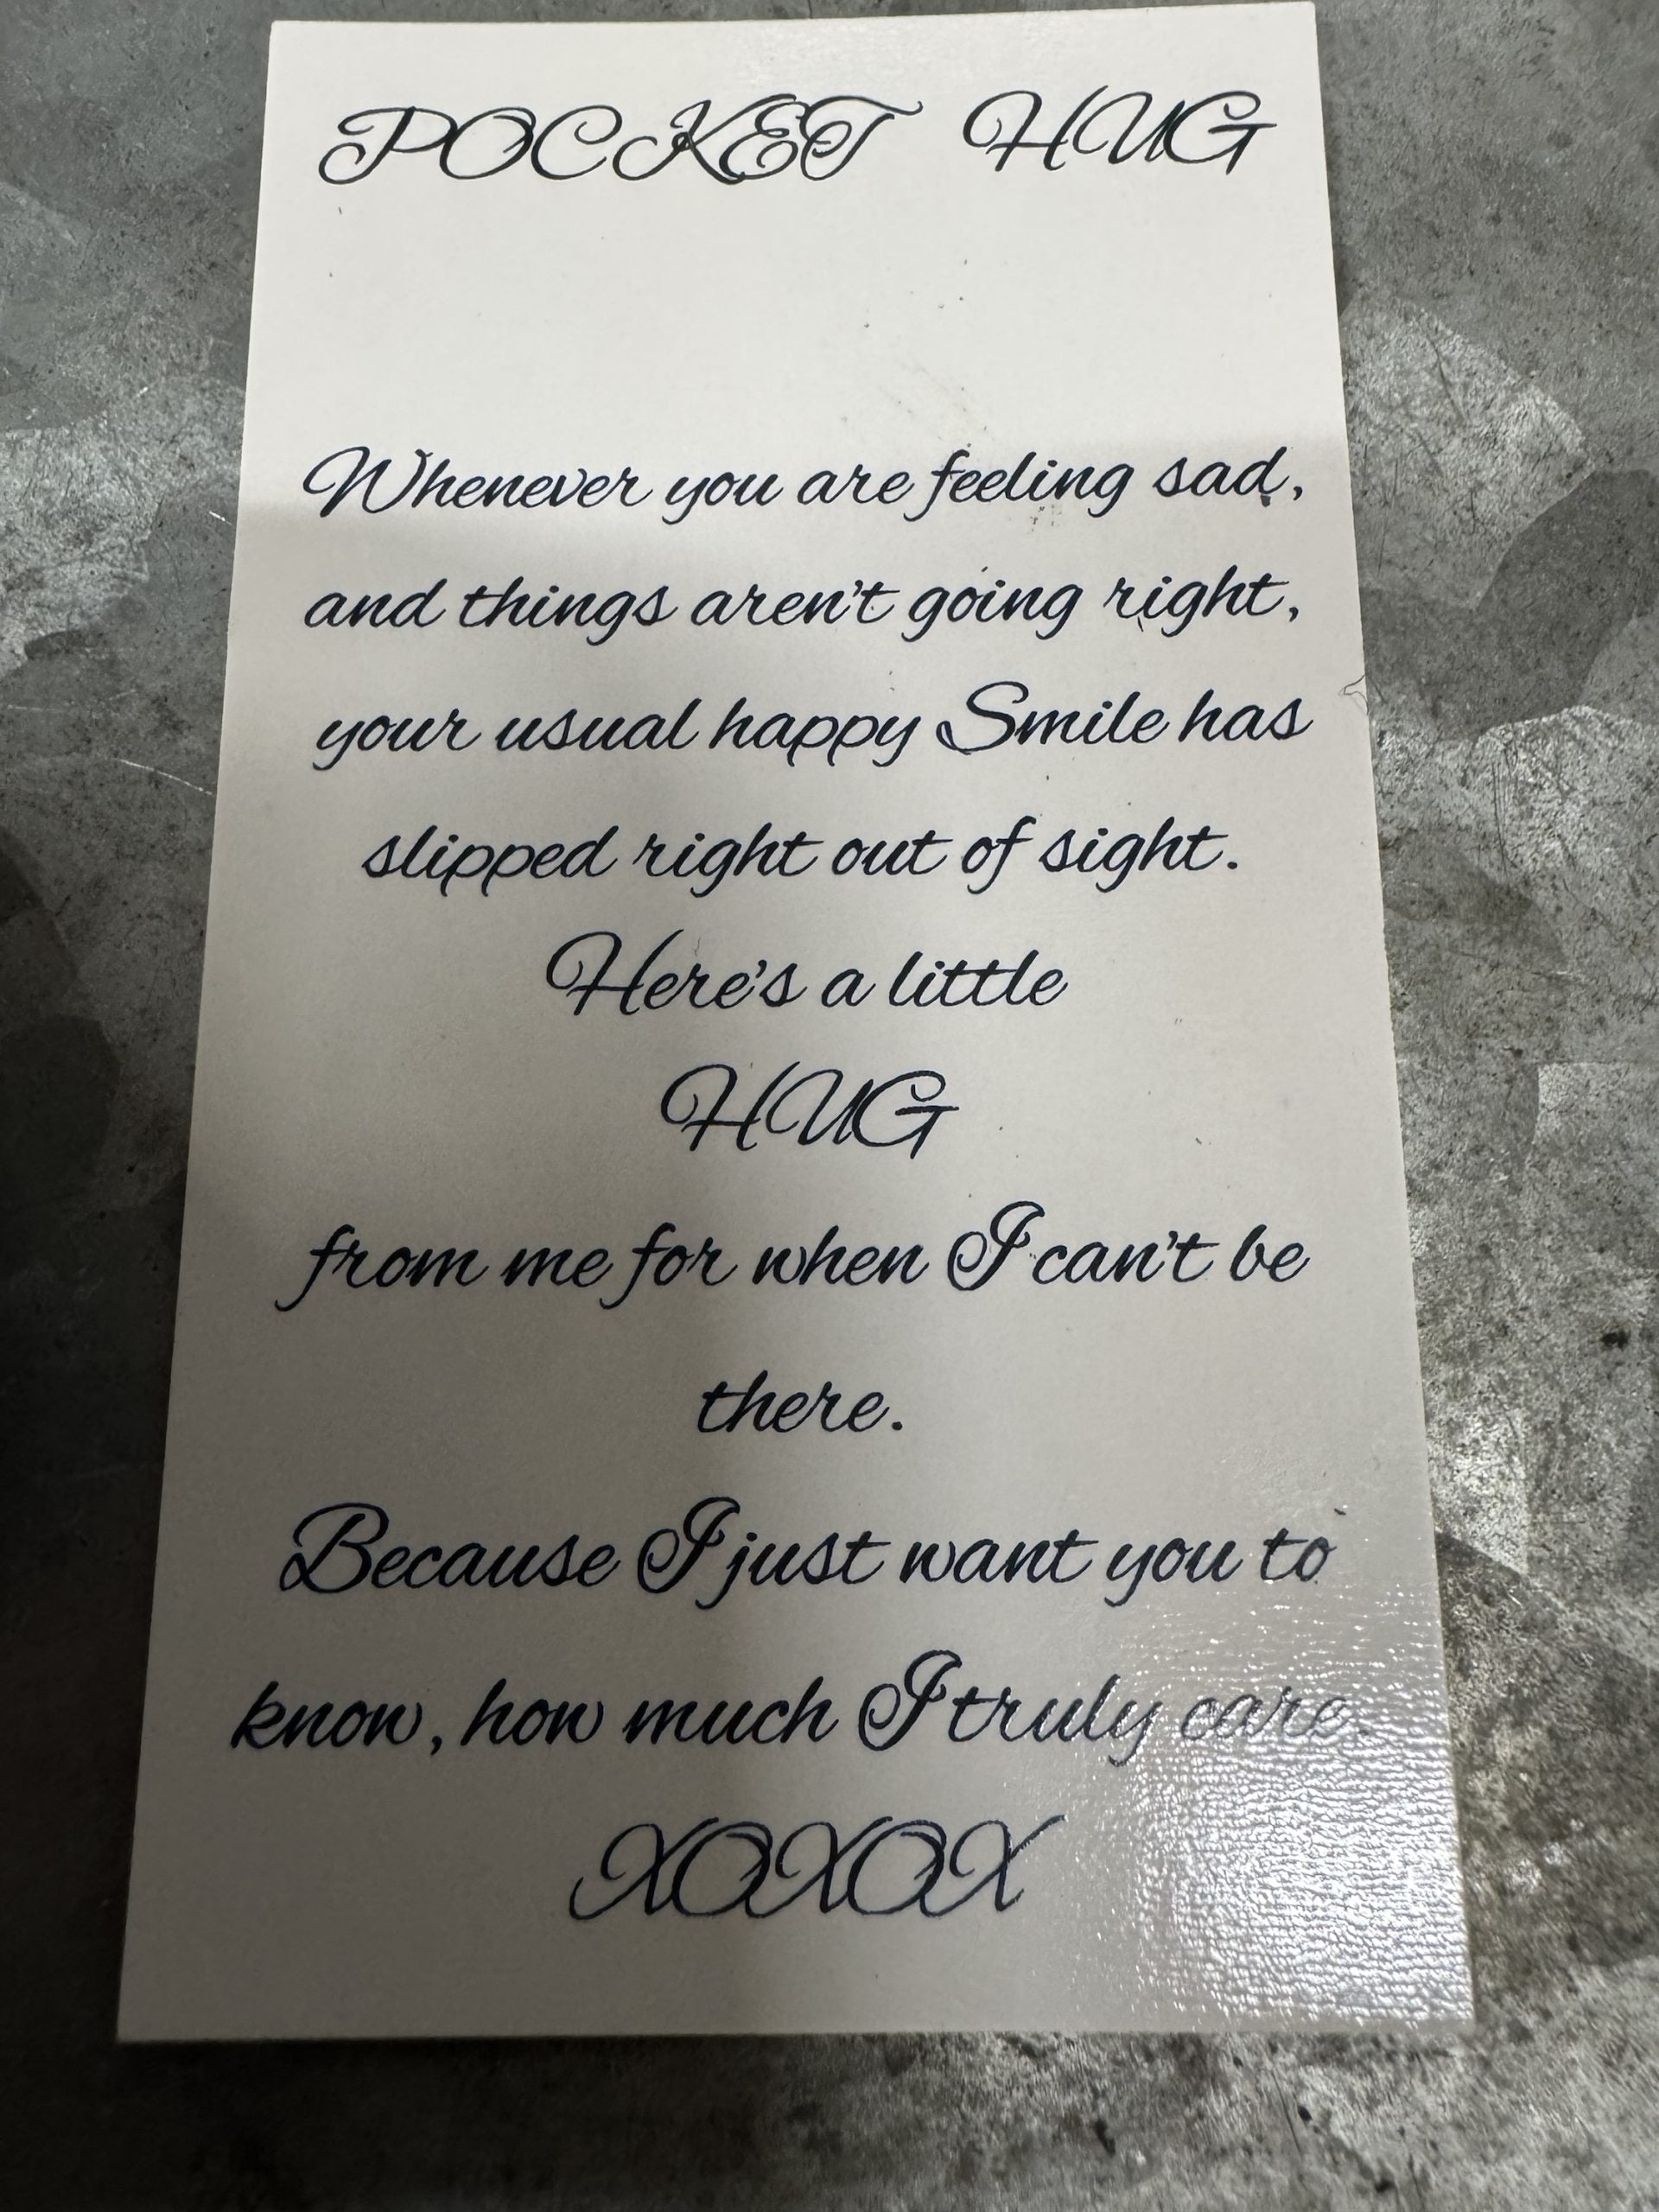 POCKET HUG
Whenever you are feeling sad,
and things aren't going right,
your usual happy Smile has
slipped right out of sight.
Here's a little
HUG
from me for when I can't be
there.
Because I just want you to
know, how much I truly care.
XOXOX